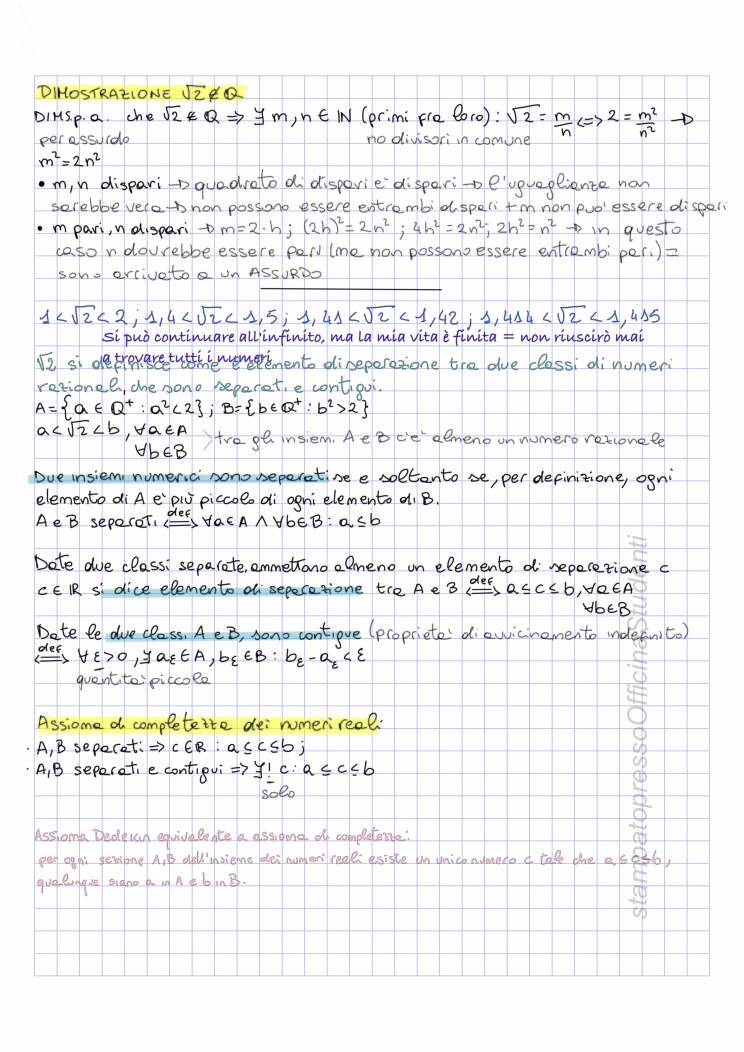 DIMOSTRAZIONE √2∉Q
DIMS p.a. che √2 ∉ Q ⇒ ∃ m,n ∈ IN (primi fra loro) : √2 = m/n <=> 2 = m²/n² →
per assurdo no divisori in comune
m²=2n²
• m,n dispari → quadrato di dispari è dispari → l'uguaglianza non
sarebbe vera → non possono essere entrambi dispari + m non può essere dispari
• m pari, n dispari → m=2·h ; (2h)²=2n² ; 4h²=2n²; 2h²=n² → in questo
caso n dovrebbe essere pari (ma non possono essere entrambi pari) =
sono arrivata a un ASSURDO
1<√2<2 ; 1,4<√2<1,5 ; 1,41<√2<1,42 ; 1,414<√2<1,415
Si può continuare all'infinito, ma la mia vita è finita = non riuscirò mai
a trovare tutti i numeri
√2 si definisce come è elemento di separazione tra due classi di numeri
razionali, che sono separati e contigui.
A={a ∈ Q⁺ : a²<2} ; B={b∈Q⁺ : b²>2}
a<√2<b, ∀a∈A
∀b∈B >tra gli insiemi A e B c'è almeno un numero razionale
Due insiemi numerici sono separati se e soltanto se, per definizione, ogni
elemento di A è più piccolo di ogni elemento di B.
A e B separati <=def=> ∀a∈A ∧ ∀b∈B : a≤b
Date due classi separate, ammettono almeno un elemento di separazione c
c∈ℝ si dice elemento di separazione tra A e B <=def=> a≤c≤b, ∀a∈A
∀b∈B
Date le due classi A e B, sono contigue (proprietà di avvicinamento indefinito)
<=def=> ∀ε>0, ∃aε∈A, bε∈B : bε-aε<ε
quantità piccola
Assioma di completezza dei numeri reali
· A,B separati => c∈R : a≤c≤b ;
· A,B separati e contigui => ∃! c : a≤c≤b
solo
Assioma Dedekin equivalente a assioma di completezza:
per ogni sezione A,B dell'insieme dei numeri reali esiste un unico numero c tale che a≤c≤b,
qualunque siano a in A e b in B.
stampatopressoOfficinaStudenti